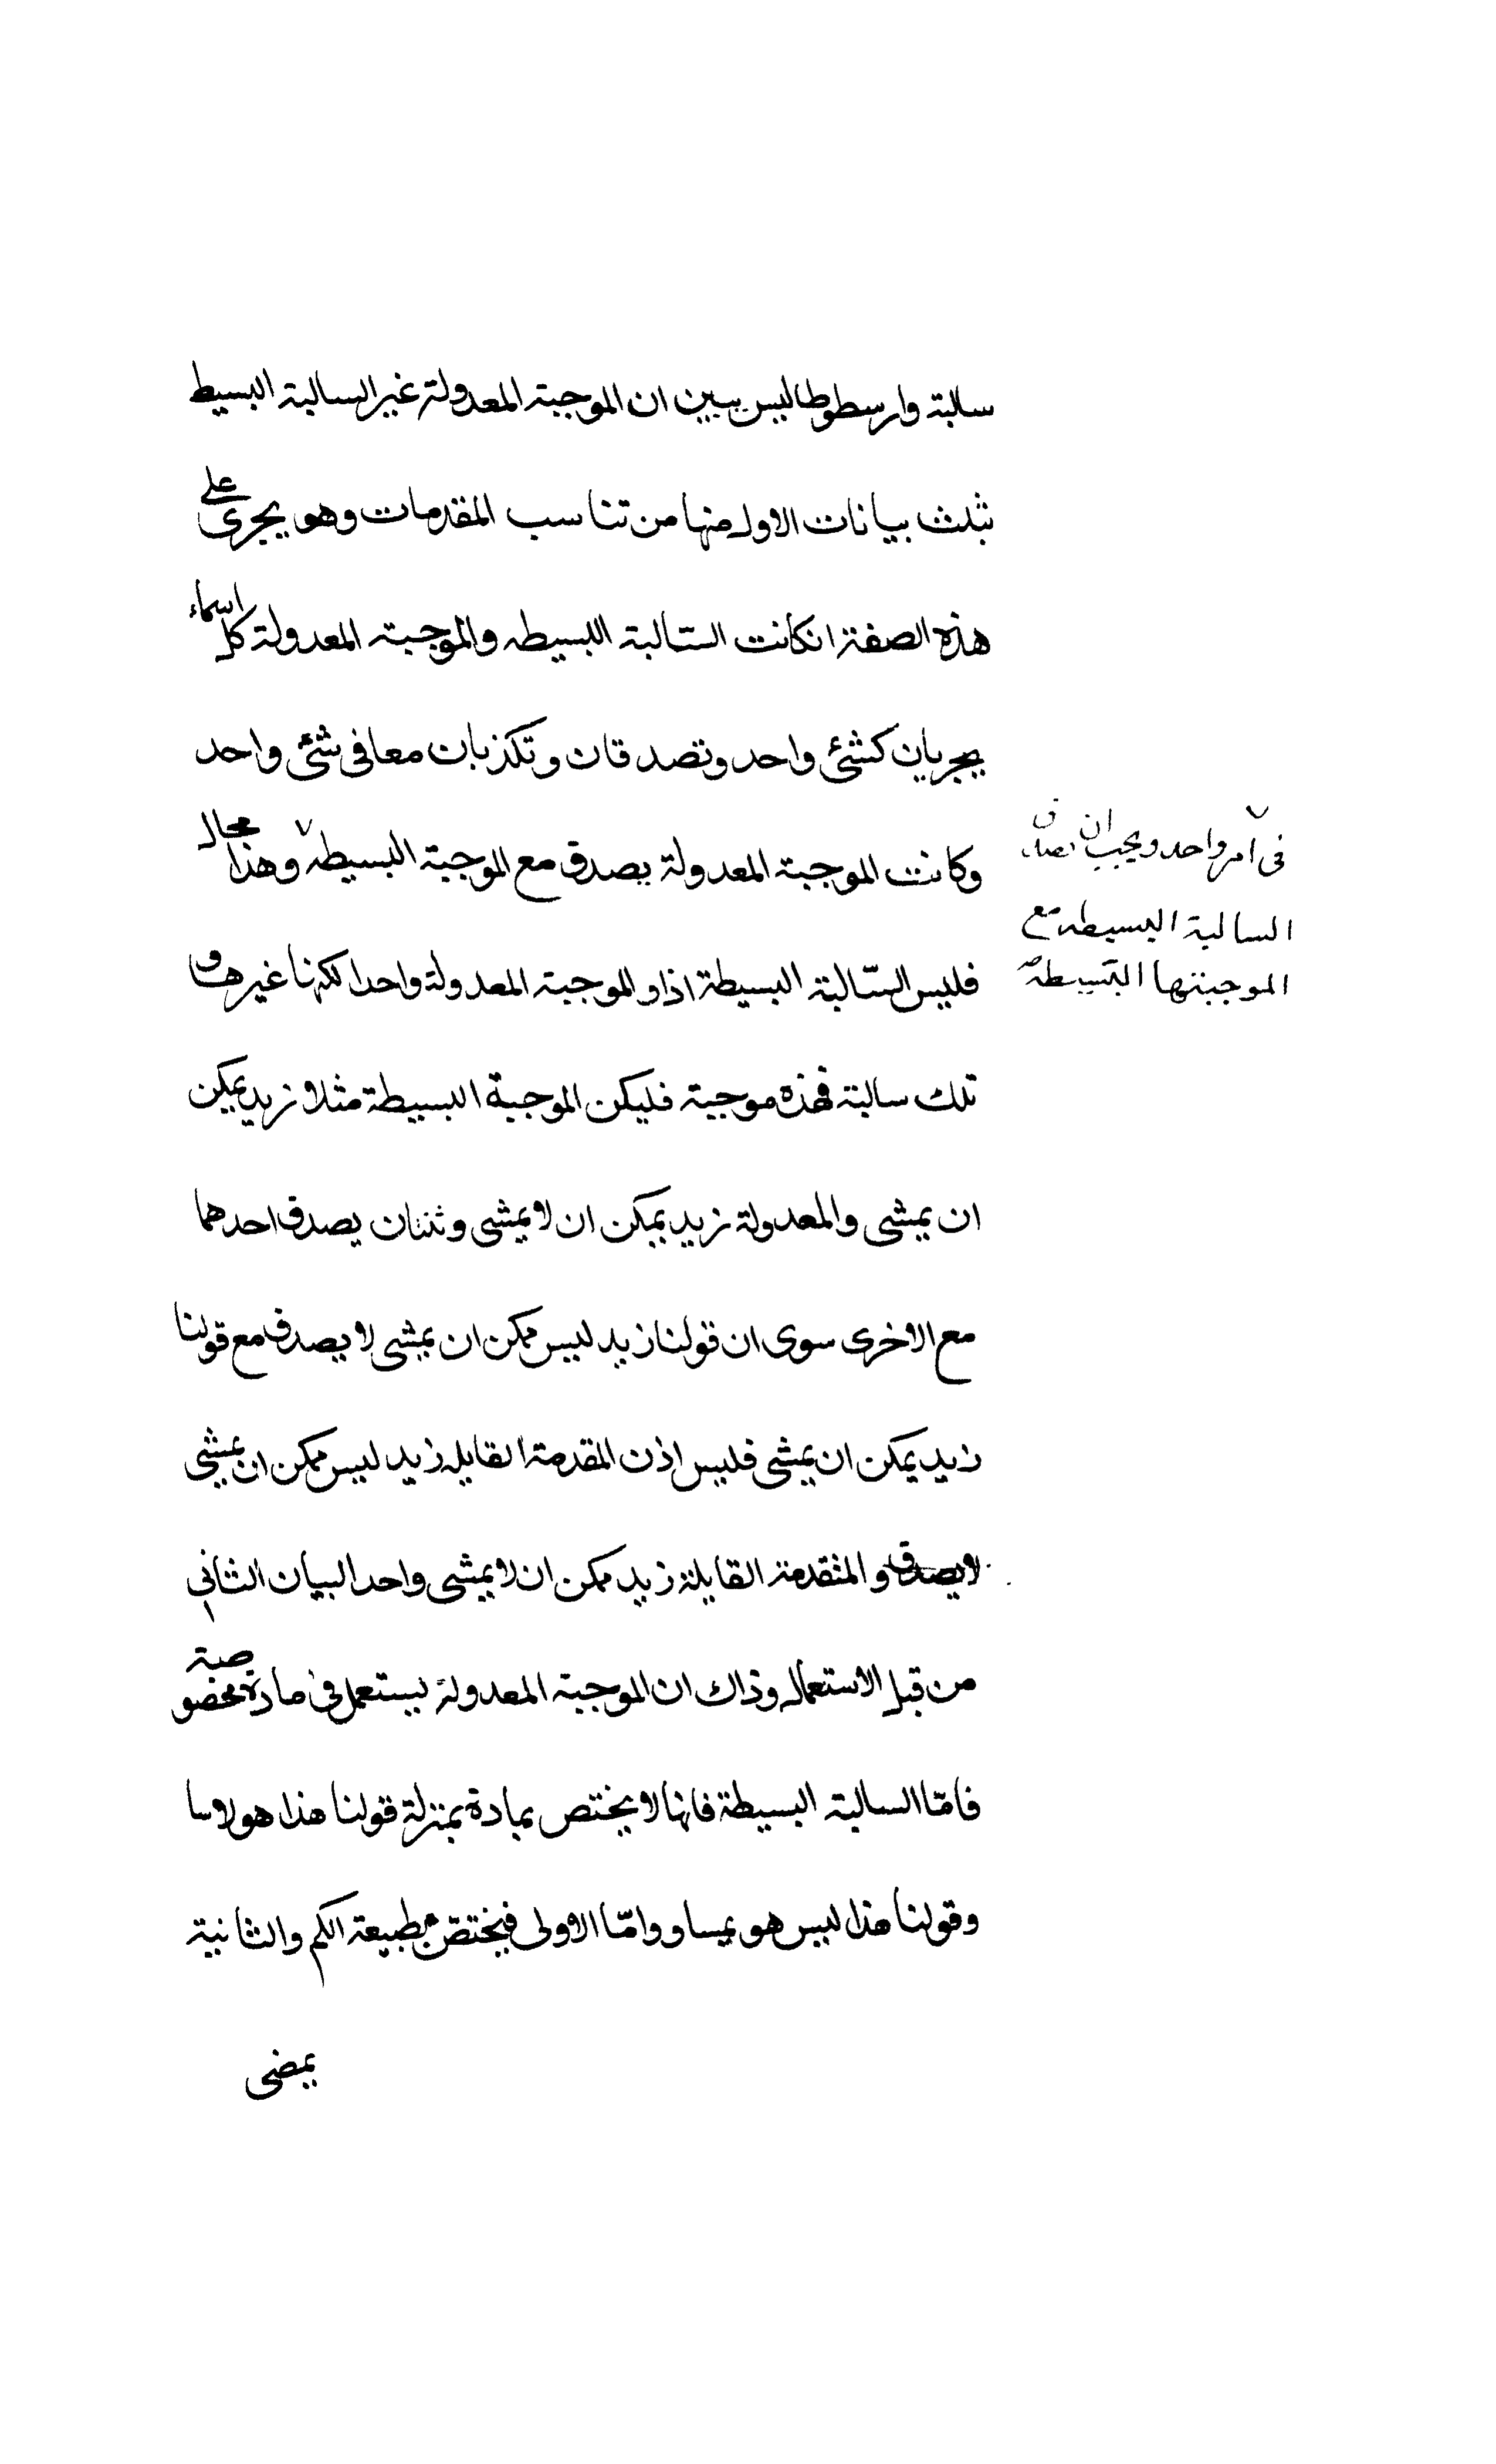 سالبة وارسطوطاليس يبين ان الموجبة المعدولة غير السالبة البسيط
بثلث بيانات الاول منها من تناسب المقدمات وهو يجرى على
هذه الصفة انكانت السّالبة البسيطه والموجبة المعدولة كل
يجريان كشئ واحد وتصدقان وتكذبان معا فى شئ واحد
وكانت الموجبة المعدولة يصدق مع الموجبة البسيطه وهذا محال
فى امر واحد ويجب ان تصدق
السالبة البسيطه مع
الموجبتها البسيطة
فليس السّالبة البسيطة اذا والموجبة المعدولة واحدا لكنها غيرها و
تلك سالبة فهذه موجبة فليكن الموجبة البسيطة مثلا زيد يمكن
ان يمشى والمعدولة زيد يمكن ان لا يمشى وثنتان يصدق احدهما
مع الاخرى سوى ان قولنا زيد ليس ممكن ان يمشى لا يصدق مع قولنا
زيد يمكن ان يمشى فليس اذن المقدمة القايله زيد ليس ممكن ان يمشى
لا يصدق والمتقدمة القايلة زيد ممكن ان لا يمشى واحد البيان الثانى
من قبل الاستعمال وذاك ان الموجبة المعدولة يستعمل فى مادة مخصوصة
فامّا السالبة البسيطة فانها لا يختص بمادة بمنزلة قولنا هذا هو لا مسا
وقولنا هذا ليس هو بمساو وامّا الاولى فيختص بطبيعة الكم والثانية
يمضى